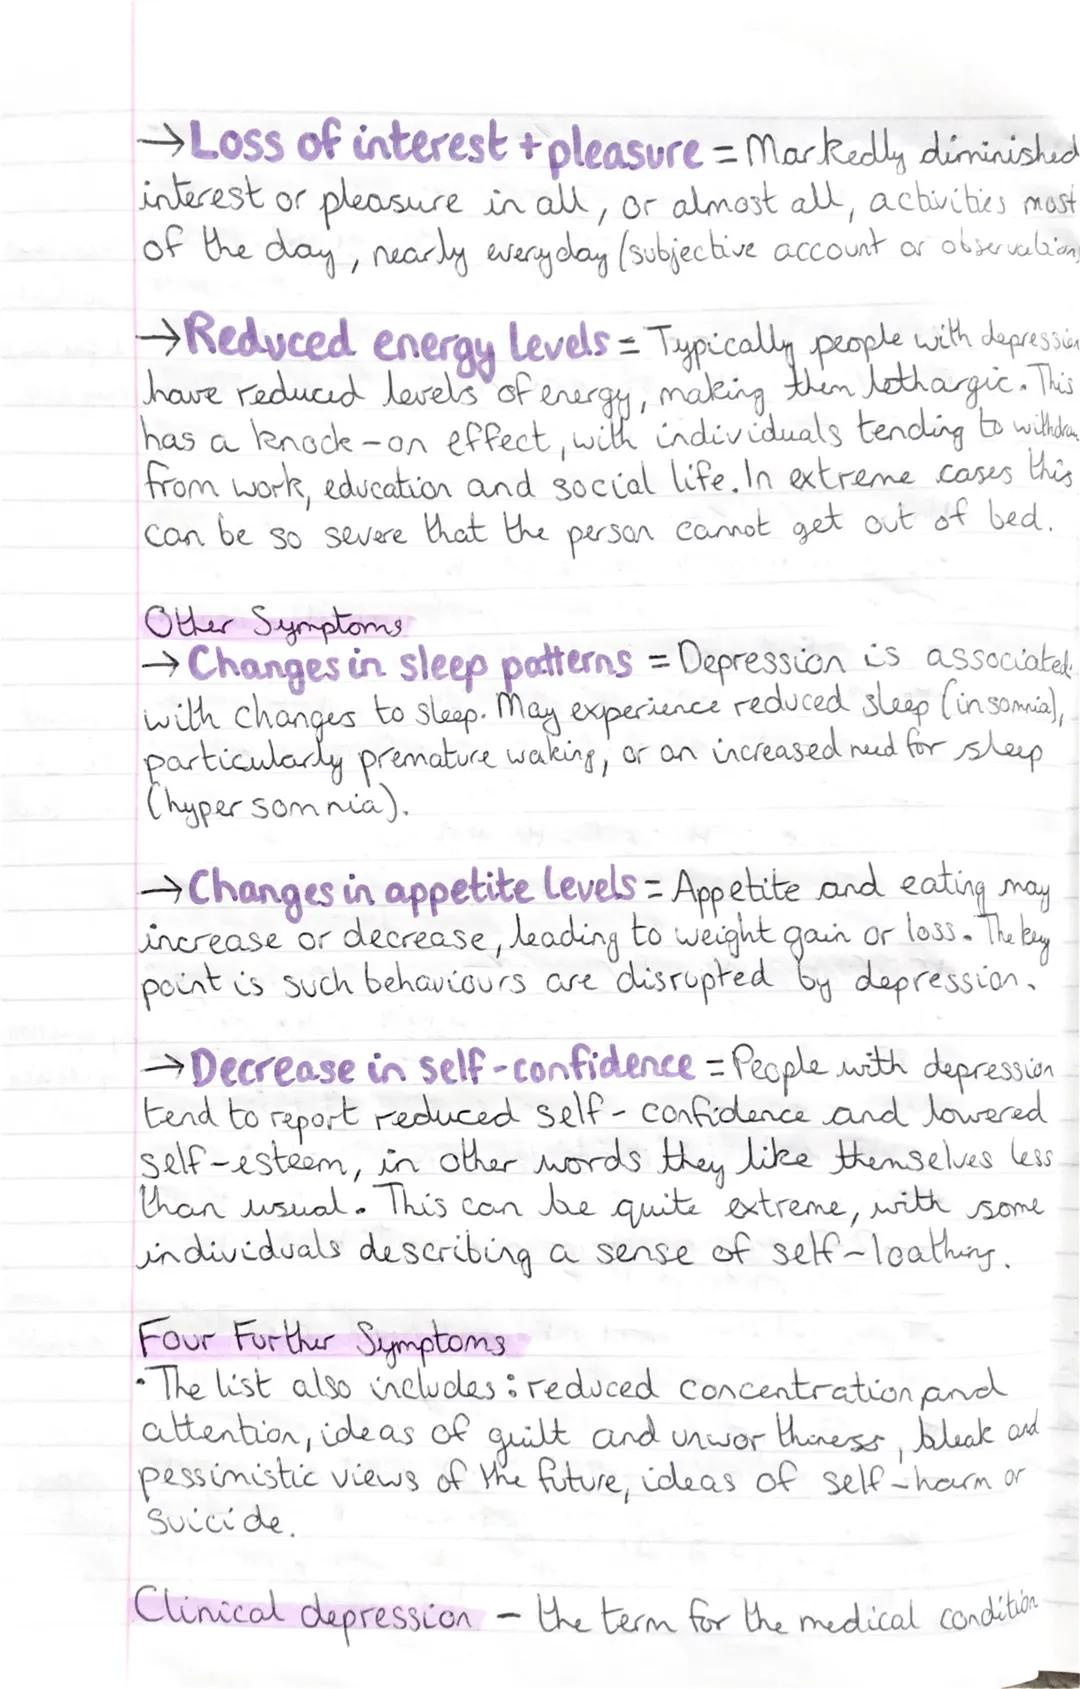 →Loss of interest + pleasure = Markedly diminished
interest or pleasure in all, or almost all, activities most
of the day, nearly everyday (subjective account or observation)
→Reduced energy levels = Typically people with depression
have reduced levels of energy, making them lethargic. This
has a knock-on effect, with individuals tending to withdraw
from work, education and social life. In extreme cases this
can be so severe that the person cannot get out of bed.
Other Symptoms
→ Changes in sleep patterns = Depression is associated
with changes to sleep. May experience reduced sleep (insomnia),
particularly premature waking, or an increased need for sleep
(hypersomnia).
→Changes in appetite levels = Appetite and eating may
increase or decrease, leading to weight gain or loss. The key
point is such behaviours are disrupted by depression.
→Decrease in self-confidence = People with depression
tend to report reduced self-confidence and lowered
self-esteem, in other words they like themselves less
than usual. This can be quite extreme, with some
individuals describing a sense of self-loathing.
Four Further Symptoms
• The list also includes: reduced concentration and
attention, ideas of guilt and unworthiness, bleak and
pessimistic views of the future, ideas of self-harm or
suicide.
Clinical depression - the term for the medical condition